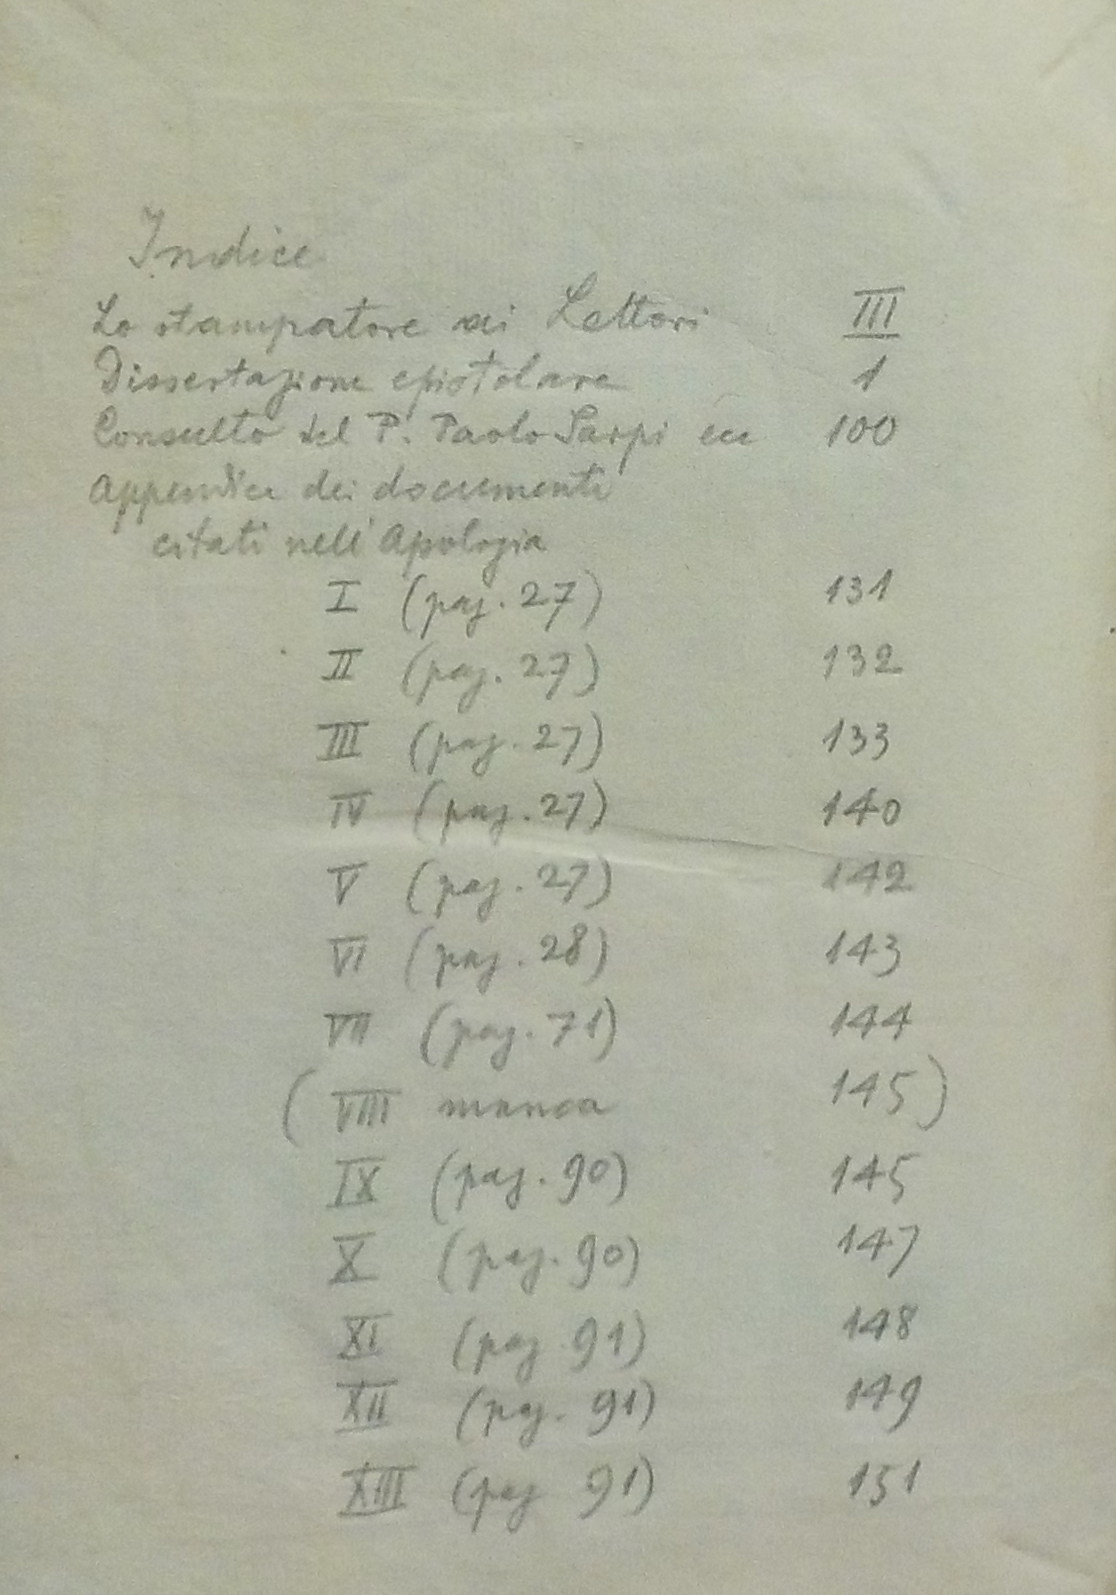 Indice
Lo stampatore ai Lettori III
Dissertazione epistolare 1
Consulto del P. Paolo Sarpi ecc 100
Appendice dei documenti
citati nell'Apologia
I (pag. 27) 131
II (pag. 27) 132
III (pag. 27) 133
IV (pag. 27) 140
V (pag. 27) 142
VI (pag. 28) 143
VII (pag. 71) 144
( VIII manca 145)
IX (pag. 90) 145
X (pag. 90) 147
XI (pag. 91) 148
XII (pag. 91) 149
XIII (pag 91) 151